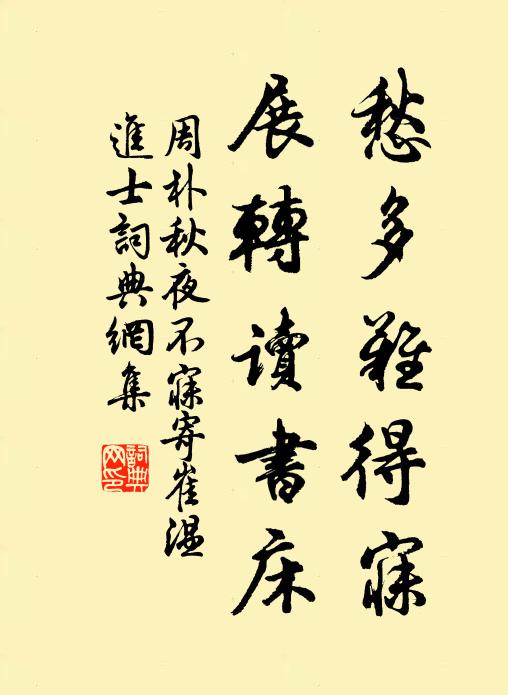 愁多難得寐
展轉讀書床
周朴秋夜不寐寄崔温
進士詞典網集
詞典
网印